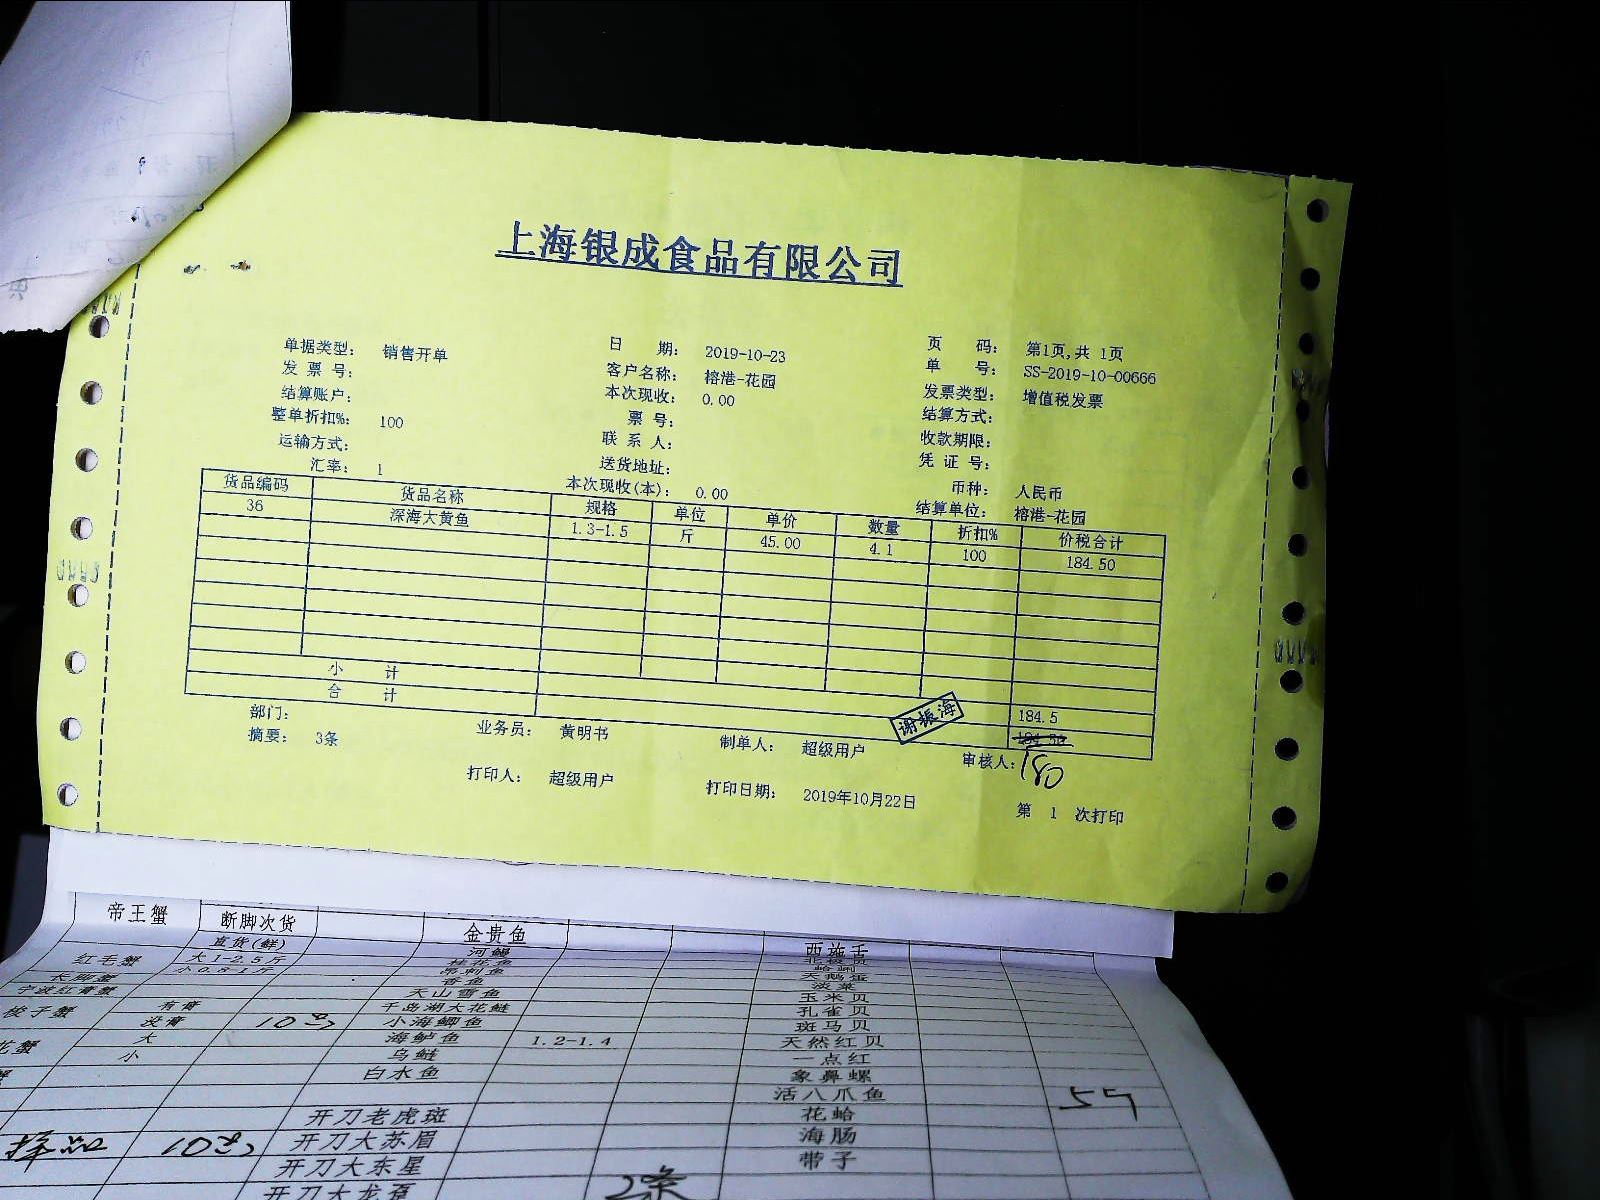 上海银成食品有限公司
单据类型： 销售开单 日 期： 2019-10-23 页 码： 第1页,共 1页
发 票 号： 客户名称： 榕港-花园 单 号： SS-2019-10-00666
结算账户： 本次现收： 0.00 发票类型： 增值税发票
整单折扣%： 100 票 号： 结算方式：
运输方式： 联 系 人： 收款期限：
汇率： 1 送货地址： 凭 证 号：
本次现收(本)： 0.00 币种： 人民币
结算单位： 榕港-花园
货品编码 货品名称 规格 单位 单价 数量 折扣% 价税合计
36 深海大黄鱼 1.3-1.5 斤 45.00 4.1 100 184.50
小 计 184.5
合 计 184.50
谢振海
180
部门： 业务员： 黄明书 制单人： 超级用户 审核人：
摘要： 3条
打印人： 超级用户 打印日期： 2019年10月22日 第 1 次打印
帝王蟹 断脚次货 金贵鱼 西施舌
直货(鲜) 河鳗
红毛蟹 大1-2.5斤 桂花鱼
长脚蟹 小0.8-1斤 昂刺鱼 天鹅蛋
宁波红膏蟹 香鱼 淡菜
天山雪鱼 玉米贝
梭子蟹 有膏 千岛湖大花鲢 孔雀贝
没膏 小海鲫鱼 斑马贝
花蟹 大 海鲈鱼 1.2-1.4 天然红贝
小 乌鲢 一点红
蟹 白水鱼 象鼻螺
活八爪鱼
开刀老虎斑 花蛤
开刀大苏眉 海肠
开刀大东星 带子
开刀大龙趸 2条